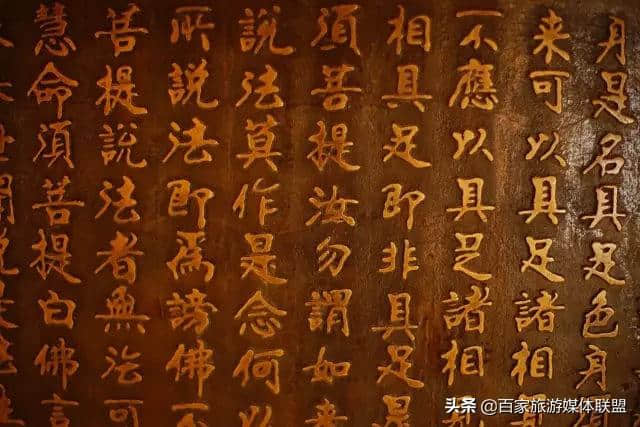 身是名具足色身
来可以具足諸相
不應以具足諸相
相具足即非具足是
須菩提汝勿謂如来
說法莫作是念何以
所說法即為謗佛不
菩提說法者無法可
慧命須菩提白佛言
头条 @百家旅游媒体联盟